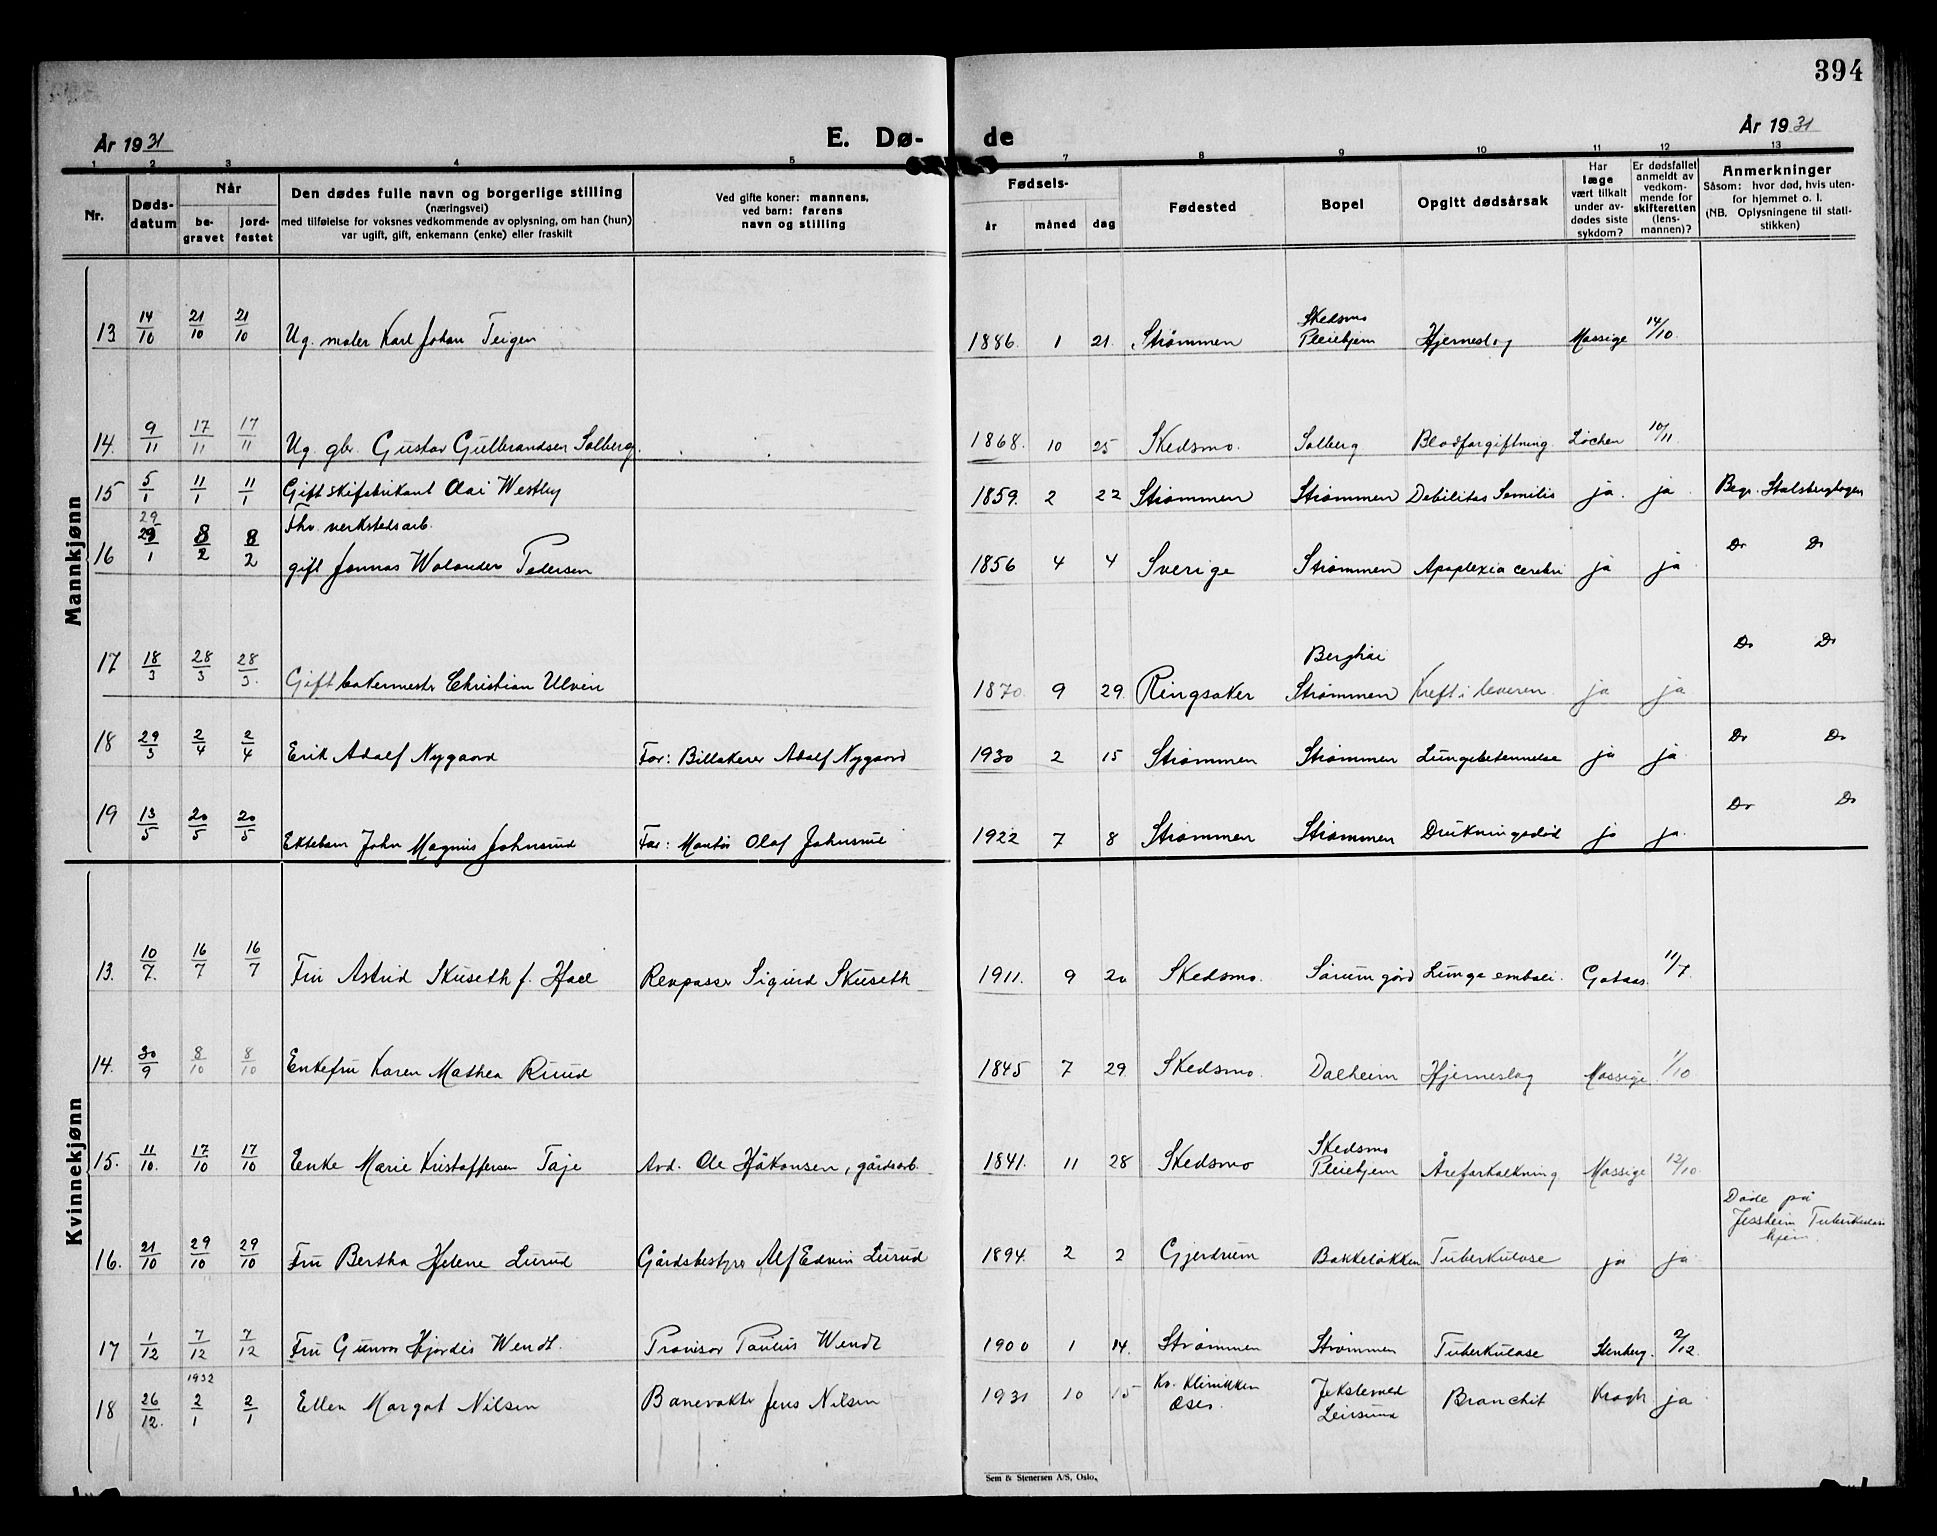 394
År 1931
E. Dø-
de
År 1931
1 2 3 4 5 7 8 9 10 11 12 13
Nr.
Døds-
datum
Når
be-
gravet
jord-
festet
Den dødes fulle navn og borgerlige stilling
(næringsvei)
med tilføielse for voksnes vedkommende av oplysning, om han (hun)
var ugift, gift, enkemann (enke) eller fraskilt
Ved gifte koner: mannens,
ved barn: farens
navn og stilling
Fødsels-
år måned dag
Fødested
Bopel
Opgitt dødsårsak
Har
læge
vært tilkalt
under av-
dødes siste
sykdom?
Er dødsfallet
anmeldt av
vedkom-
mende for
skifteretten
(lens-
mannen)?
Anmerkninger
Såsom: hvor død, hvis uten-
for hjemmet o. l.
(NB. Oplysningene til stati-
stikken)
Mannkjønn
13 14/10 21/10 21/10 Ug. maler Karl Johan Teigen 1886. 1 21. Strømmen Skedsmo Pleiehjem Hjerneslag Massige 14/10.
14. 9/11 17/11 17/11 Ug gbr. Gustav Gulbrandsen Solberg. 1868. 10 25 Skedsmo. Solberg Blodforgiftning Løchen 10/11
15 5/1 11/1 11/1 Gift skifabrikant Olai Westby 1859. 2 22 Strømmen Strømmen Debilitas Senilis ja. ja Begr. Stalsberghagen
16 29/1 8/2 8/2 Fhv. verkstedsarb.
gift Jonnas Walander Pedersen 1856 4 4 Sverige Strømmen Apoplexia cerebri ja ja Do Do
17 18/3 28/3 28/3. Gift bakermester Christian Ulven 1870. 9 29. Ringsaker Berghei Strømmen Kreft i leveren. ja ja Do Do
18 29/3 2/4 2/4 Erik Adolf Nygaard Far: Bileier Adolf Nygaard 1930 2 15 Strømmen Strømmen Lungebetennelse ja ja. Do Do
19 13/5 20/5 20/5 Ektebarn John Magnus Johnsrud Far: Montør Olaf Johnsrud 1922 7 8 Strømmen Strømmen Drukningsdød ja ja. Do Do
Kvinnekjønn
13. 10/7. 16/7 16/7 Fru Astrid Skuseth f. Hoel Revpasser Sigurd Skuseth 1911. 9 20 Skedsmo. Sørum gård Lunge emboli. Gotaas. 11/7.
14. 30/9 8/10 8/10 Enkefru Karen Mathea Ruud 1845 7 29. Skedsmo. Dalheim Hjerneslag Massige 1/10.
15. 11/10. 17/10 17/10 Enke Marie Kristoffersen Taje Avd. Ole Håkonsen, gårdsarb. 1841. 11 28 Skedsmo Skedsmo Pleiehjem Åreforkalkning Massige 12/10.
16. 21/10 29/10 29/10 Fru Bertha Helene Lurud Gårdsbestyrer Alf Edvin Lurud 1894. 2 2 Gjerdrum Bakkeløkken Tuberkulose ja ja Døde på
Jessheim Tuberkulose
hjem.
17 1/12 7/12 7/12 Fru Gunvor Hjørdis Wendt. Provisor Paulus Wendt 1900 1 14. Strømmen Strømmen Tuberkulose Stenberg. 2/12.
1932
18 26/12. 2/1 2/1 Ellen Margot Nilsen Banevokter Jens Nilsen 1931 10 15 Kv. Klinikken Oslo. Leirsund Bronchit Kragh ja
Sem & Stenersen A/S, Oslo.